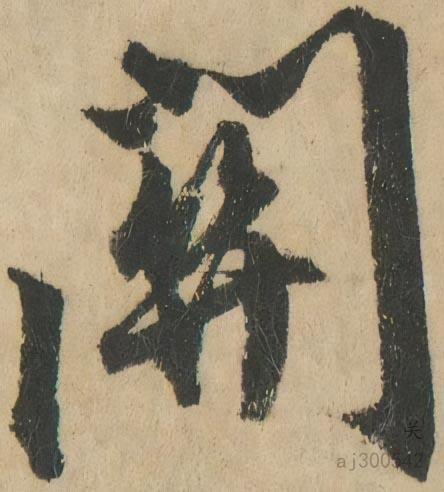 關
吴
aj300542